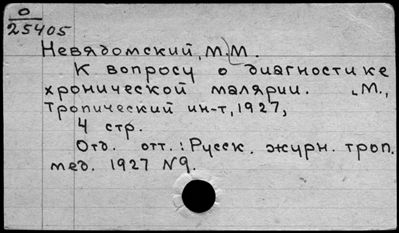 О
25405
Невядомский, М. М.
К вопросу о диагностике
хронической малярии. М.,
Тропический ин-т, 1927,
4 стр.
Отд. отт.: Русск. журн. троп.
мед. 1927 №9.